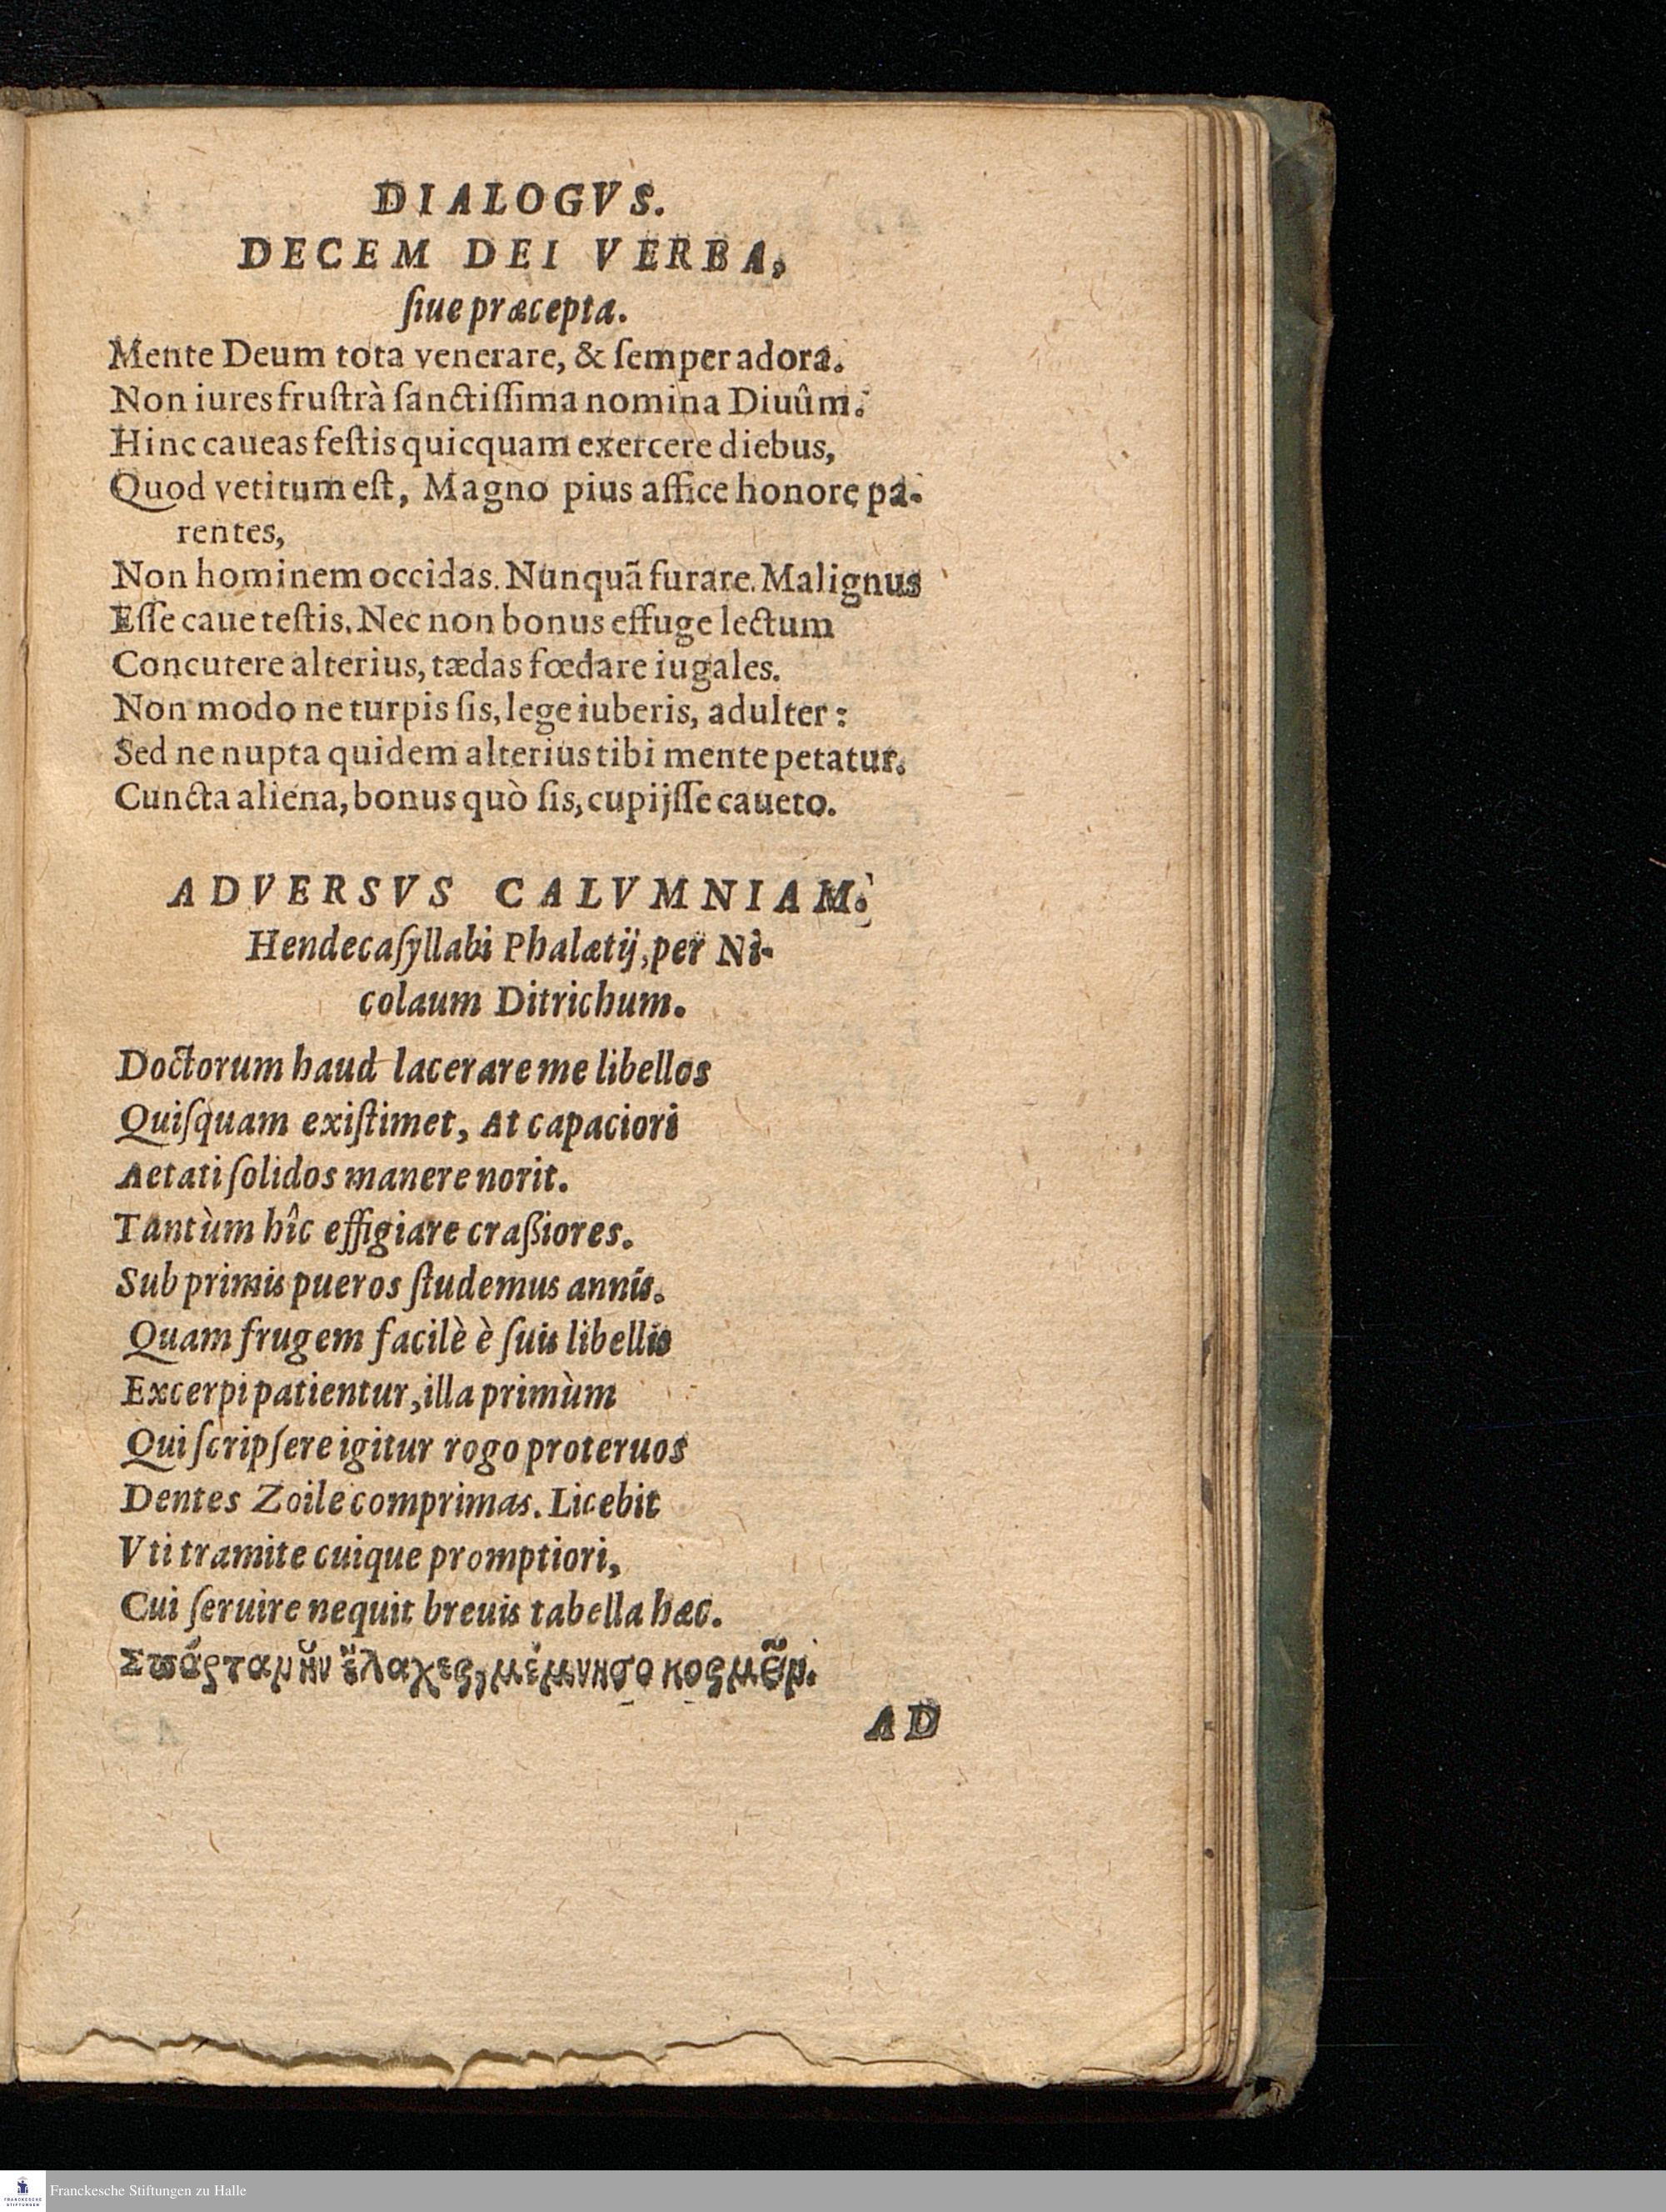 DIALOGVS.
DECEM DEI VERBA,
ſiue præcepta.
Mente Deum tota venerare, & ſemper adora.
Non iures fruſtrà ſanctiſſima nomina Diuûm.
Hinc caueas feſtis quicquam exercere diebus,
Quod vetitum eſt, Magno pius affice honore pa-
rentes,
Non hominem occidas. Nunquã furare. Malignus
Eſſe caue teſtis. Nec non bonus effuge lectum
Concutere alterius, tædas fœdare iugales.
Non modo ne turpis ſis, lege iuberis, adulter:
Sed ne nupta quidem alterius tibi mente petatur.
Cuncta aliena, bonus quò ſis, cupijſſe caueto.
ADVERSVS CALVMNIAM.
Hendecaſyllabi Phalætij, per Ni-
colaum Ditrichum.
Doctorum haud lacerare me libellos
Quiſquam exiſtimet, At capaciori
Aetati ſolidos manere norit.
Tantùm hîc effigiare craßiores.
Sub primis pueros ſtudemus annis.
Quam frugem facilè è ſuis libellis
Excerpi patientur, illa primùm
Qui ſcripſere igitur rogo proteruos
Dentes Zoile comprimas. Licebit
Vti tramite cuique promptiori,
Cui ſeruire nequit breuis tabella hæc.
Σπάρταμ ἣν ἔλαχες, μέμνησο κοσμεῖν.
AD
FRANCKESCHE
STIFTUNGEN
Franckesche Stiftungen zu Halle